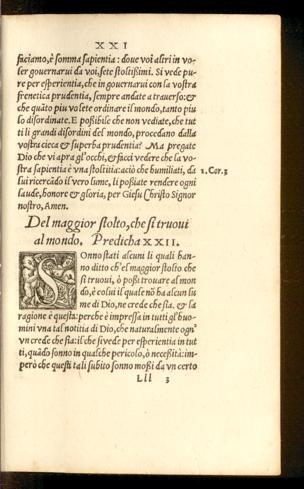 XXI
faciamo, è somma sapientia: doue voi altri in vo-
ler gouernarui da voi, sete stoltißimi. Si vede pu
re per esperientia, che in gouernarui con la vostra
frenetica prudentia, sempre andate a trauerso: &
che quāto piu volete ordinare il mondo, tanto piu
lo disordinate. E poßibile che non vediate, che tut
ti li grandi disordini del mondo, procedano dalla
vostra cieca & superba prudentia? Ma pregate
Dio che vi apra gl'occhi, & facci vedere che la vo-
stra sapientia è vna stoltitia: aciò che humiliati, da 1. Cor. 3
lui ricercādo il vero lume, li poßiate rendere ogni
laude, honore & gloria, per Giesu Christo Signor
nostro, Amen.
Del maggior stolto, che si truoui
al mondo. Predicha XXII.
SOnno stati alcuni li quali han-
no ditto ch'el maggior stolto che
si truoui, ò poßi trouare al mon
do, è colui il quale nō ha alcun lu
me di Dio, ne crede che sia. & la
ragione è questa: perche è impressa in tutti gl'huo
mini vna tal notitia di Dio, che naturalmente ogn'
vn crede che sia: il che si vede per esperientia in tut
ti, quādo sonno in qualche pericolo, ò neceßità: im-
però che questi tali subito sonno moßi da vn certo
Lll 3